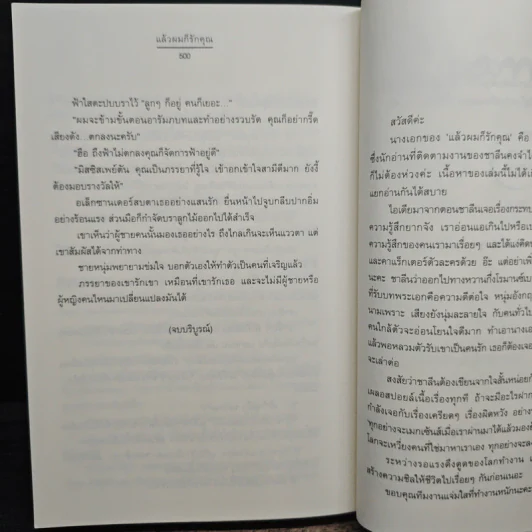 แล้วผมก็รักคุณ
500
ฟ้าใสตะปบบราไว้ "ลูกๆ ก็อยู่ คนก็เยอะ..."
"ผมจะข้ามขั้นตอนอารัมภบทและทำอย่างรวบรัด คุณก็อย่ากรี๊ด
เสียงดัง...ตกลงนะครับ"
"ฮือ ถึงฟ้าไม่ตกลงคุณก็จัดการฟ้าอยู่ดี"
"มิสซิสเพย์ตัน คุณเป็นภรรยาที่รู้ใจ เข้าอกเข้าใจสามีดีมาก ยังงี้
ต้องมอบรางวัลให้"
อเล็กซานเดอร์สบตาเธออย่างแสนรัก ยื่นหน้าไปจูบกลีบปากอิ่ม
อย่างร้อนแรง ส่วนมือก็กำจัดบราลูกไม้ออกไปได้สำเร็จ
เขาเห็นว่าผู้ชายคนนั้นมองเธออย่างไร ถึงไกลเกินจะเห็นแววตา แต่
เขาสัมผัสได้จากท่าทาง
ชายหนุ่มพยายามข่มใจ บอกตัวเองให้ทำตัวเป็นคนที่เจริญแล้ว
ภรรยาของเขารักเขา เหมือนที่เขารักเธอ และจะไม่มีผู้ชายหรือ
ผู้หญิงคนไหนมาเปลี่ยนแปลงมันได้
(จบบริบูรณ์)
สวัสดีค่ะ
นางเอกของ 'แล้วผมก็รักคุณ' คือ
ซึ่งนักอ่านที่ติดตามงานของชาลีนคงจำไ
ก็ไม่ต้องห่วงค่ะ เนื้อหาของเล่มนี้ไม่ได้เ
แยกอ่านกันได้สบาย
ไอเดียมาจากตอนชาลีนเจอเรื่องกระทบ
ความรู้สึกยากจัง เราอ่อนแอเกินไปหรือเ
ความรู้สึกของคนเรามาเรื่อยๆ และได้แง่คิดต
และคาแร็กเตอร์ตัวละครด้วย อ๊ะ แต่อย่าเพิ่
นะคะ ชาลีนว่าออกไปทางหวานกึ่งโรมานซ์เบ
ที่รับบทพระเอกคือความดีต่อใจ หนุ่มอังกฤ
นามเพราะ เสียงยังนุ่มละลายใจ กับคนทั่วไป
คนใกล้ตัวจะอ่อนโยนใจดีมาก ทำเอานางเอ
แล้วพอหลวมตัวรับเขาเป็นคนรัก เธอก็ต้องเจอ
จะเล่าต่อ
สงสัยว่าชาลีนต้องเขียนจากใจสั้นหน่อยก็
เผลอสปอยล์เนื้อเรื่องทุกที ถ้าจะมีอะไรฝาก
กำลังเจอกับเรื่องเครียดๆ เรื่องผิดหวัง อย่าง
'ทุกอย่างจะเมกเซ้นส์เมื่อเราผ่านมาได้แล้วมองย้
โลกจะเหวี่ยงคนที่ใช่มาหาเราเอง ทุกอย่างจะลง
ระหว่างรอแรงดึงดูดของโลกทำงาน เ
สร้างความชิลให้ชีวิตไปเรื่อยๆ กันก่อนเนอะ
ขอบคุณทีมงานแจ่มใสที่ทำงานหนักนะคะ